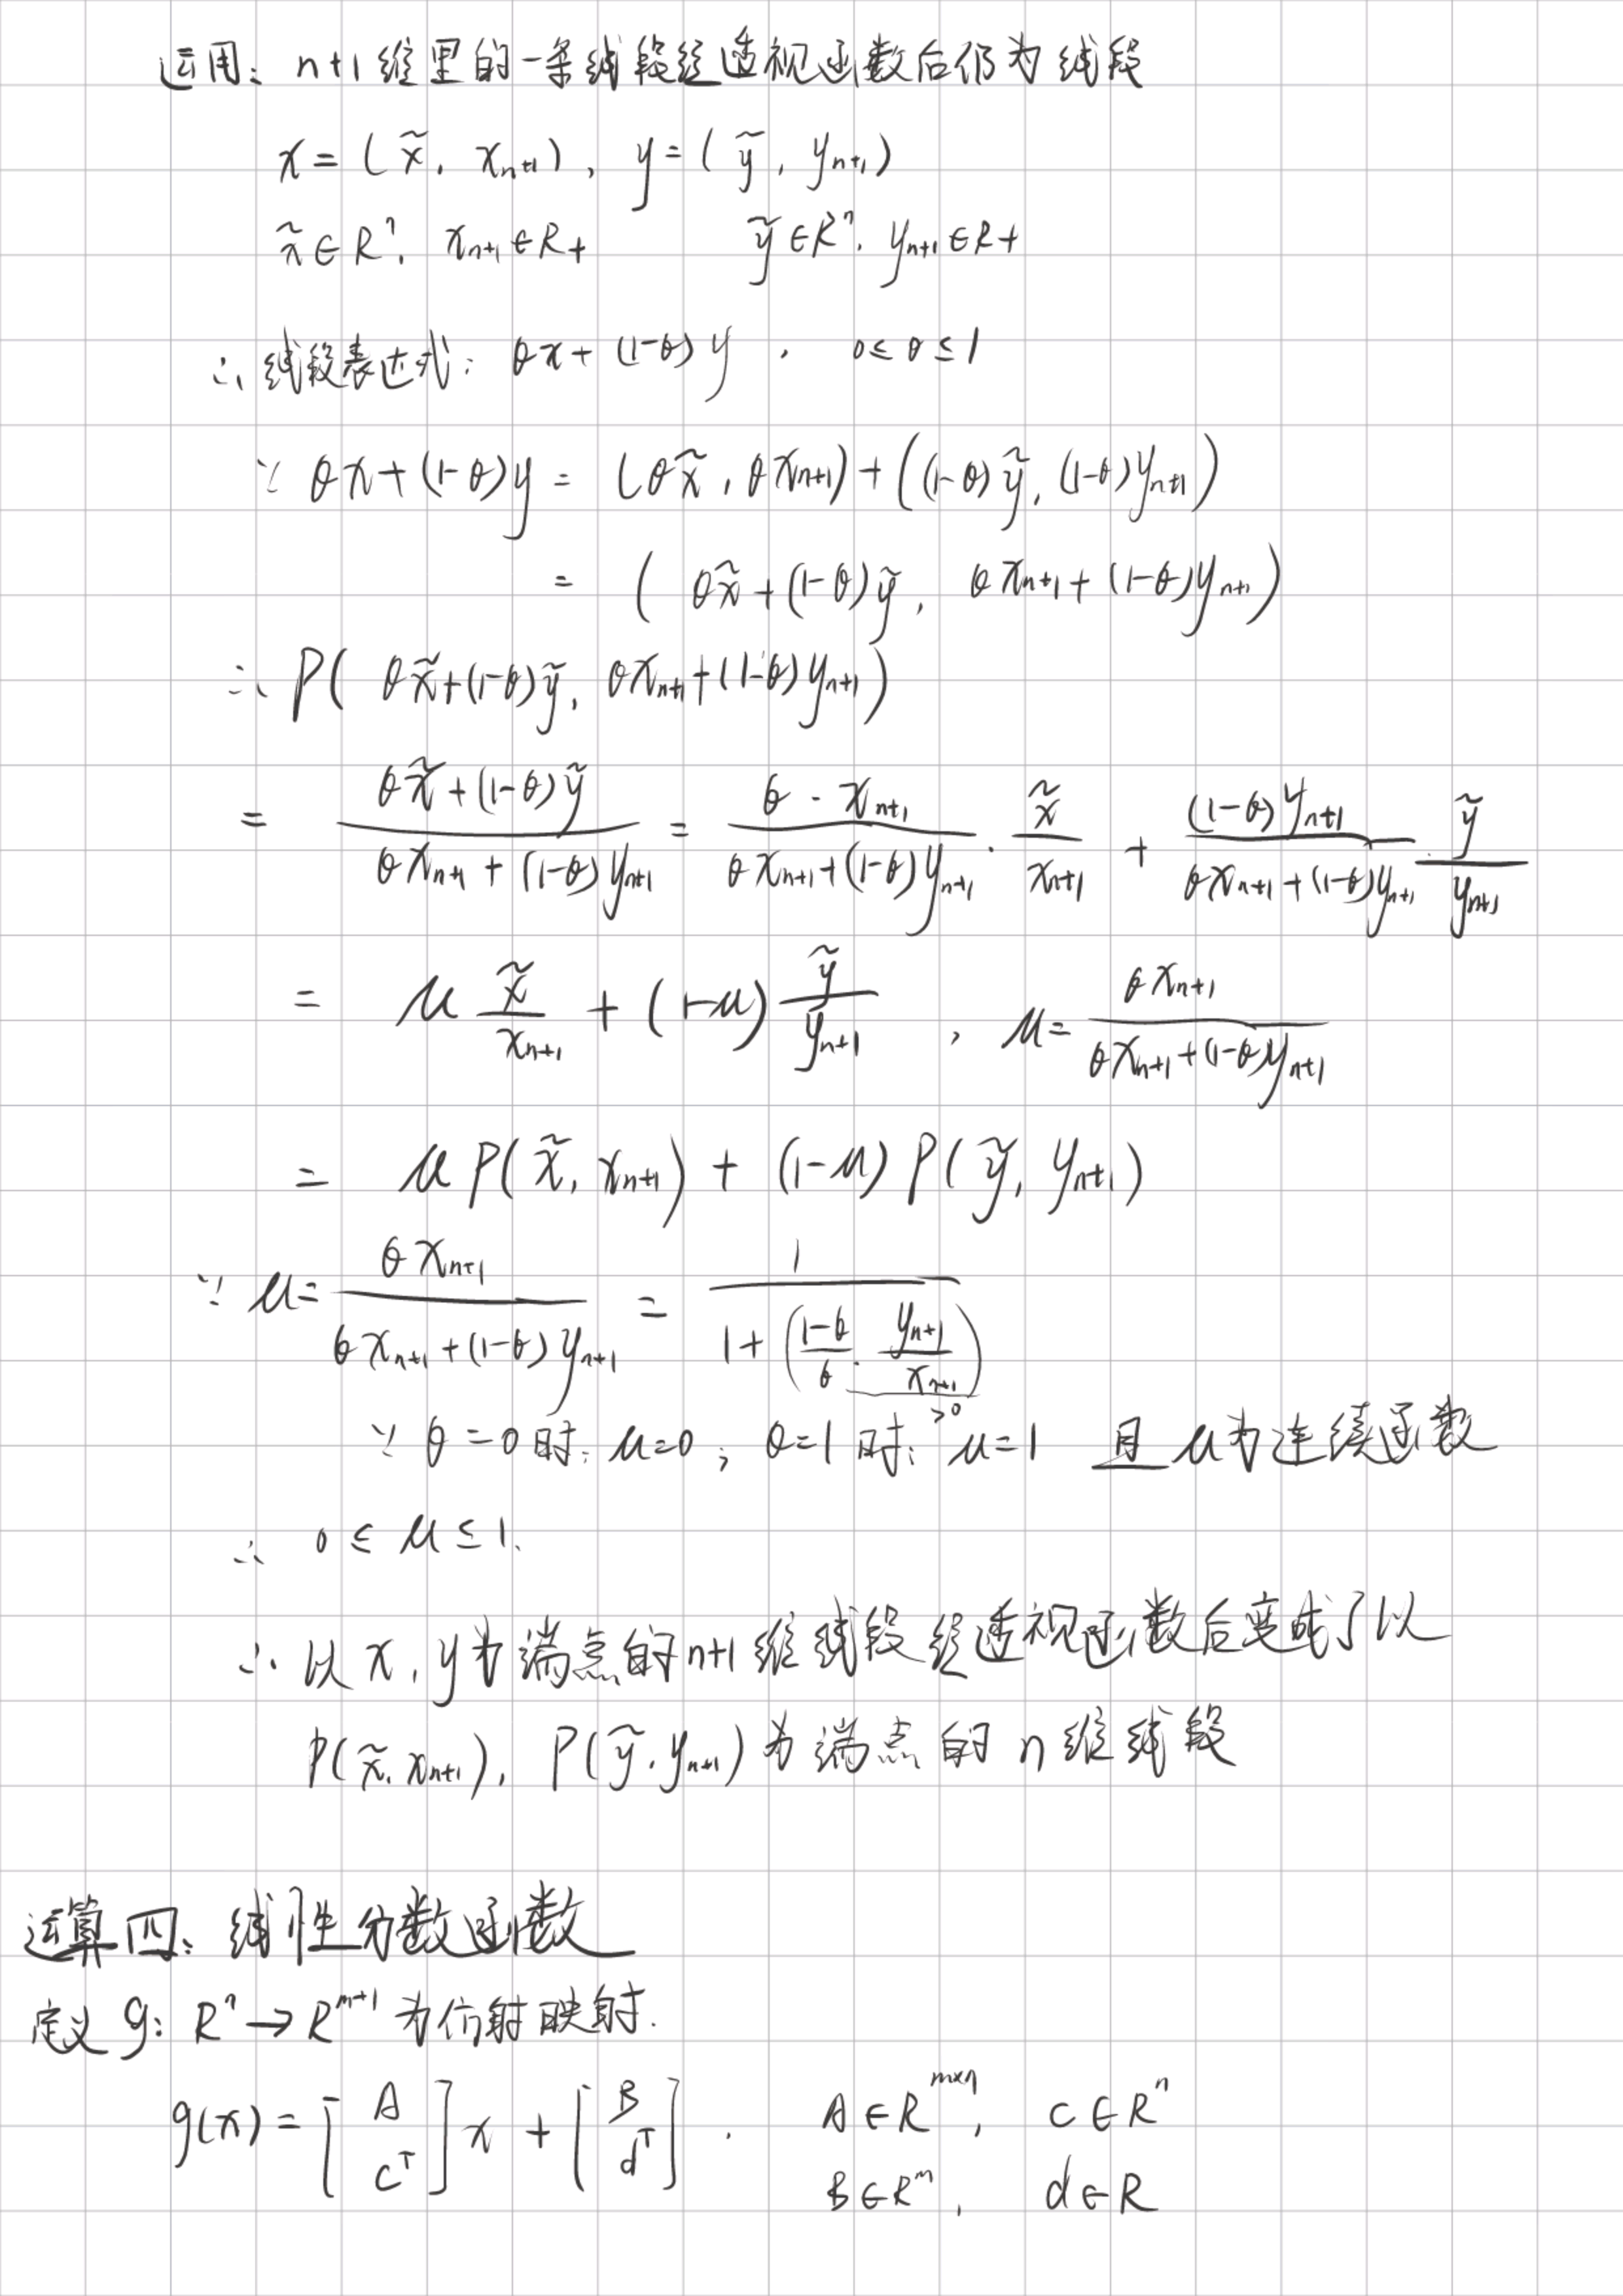 运用：n+1维里的一条线段经透视函数后仍为线段
x = (x̃, xₙ₊₁), y = (ỹ, yₙ₊₁)
x̃ ∈ Rⁿ, xₙ₊₁ ∈ R+  ỹ ∈ Rⁿ, yₙ₊₁ ∈ R+
∴ 线段表达式：θx + (1-θ)y , 0 ≤ θ ≤ 1
∵ θx + (1-θ)y = (θx̃, θxₙ₊₁) + ((1-θ)ỹ, (1-θ)yₙ₊₁)
= (θx̃ + (1-θ)ỹ, θxₙ₊₁ + (1-θ)yₙ₊₁)
∴ P(θx̃ + (1-θ)ỹ, θxₙ₊₁ + (1-θ)yₙ₊₁)
= (θx̃ + (1-θ)ỹ)/(θxₙ₊₁ + (1-θ)yₙ₊₁) = (θ·xₙ₊₁)/(θxₙ₊₁ + (1-θ)yₙ₊₁) · x̃/xₙ₊₁ + ((1-θ)yₙ₊₁)/(θxₙ₊₁ + (1-θ)yₙ₊₁) · ỹ/yₙ₊₁
= μ x̃/xₙ₊₁ + (1-μ) ỹ/yₙ₊₁ , μ = θxₙ₊₁/(θxₙ₊₁ + (1-θ)yₙ₊₁)
= μP(x̃, xₙ₊₁) + (1-μ)P(ỹ, yₙ₊₁)
∵ μ = θxₙ₊₁/(θxₙ₊₁ + (1-θ)yₙ₊₁) = 1/(1 + ((1-θ)/θ · yₙ₊₁/xₙ₊₁))
>0
∵ θ=0时：μ=0；θ=1时：μ=1 且μ为连续函数
∴ 0 ≤ μ ≤ 1.
∴ 以x, y为端点的n+1维线段经透视函数后变成了以
P(x̃, xₙ₊₁), P(ỹ, yₙ₊₁)为端点的n维线段
运算四：线性分数函数
定义 g: Rⁿ → Rᵐ⁺¹ 为仿射映射.
g(x) = [A; cᵀ] x + [B; dᵀ] . A ∈ Rᵐˣⁿ, c ∈ Rⁿ
B ∈ Rᵐ, d ∈ R